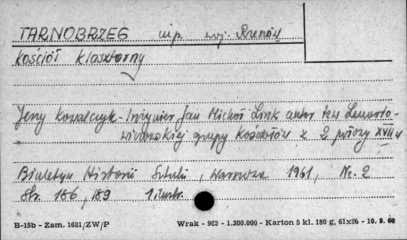 TARNOBRZEG m.p. woj. Rzeszów
Kościół klasztorny
Jerzy Kowalczyk - Inżynier Jan Michał Link autor tzw Lewarto-
wiczowskiej grupy kościołów z 2 połowy XVII w
Biuletyn Historii Sztuki, Warszawa 1961, Nr. 2
Str. 186, 189 1 ilustr.
B-15b - Zam. 1681/ZW/P Wrak - 962 - 1.300.000 - Karton 5 kl. 180 g. 61x86 - 10. 9. 60